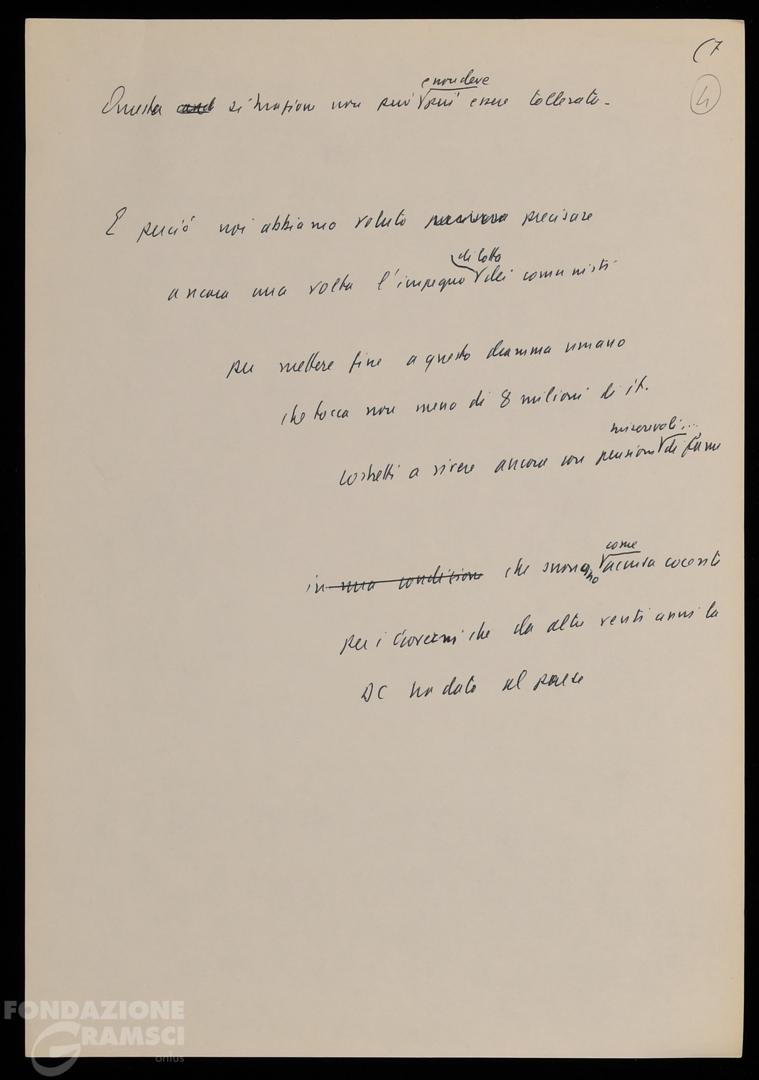 (7
4
e non deve
Questa situazione non può più essere tollerata.
E perciò noi abbiamo voluto precisare
di lotta
ancora una volta l'impegno dei comunisti
per mettere fine a questo dramma umano
che tocca non meno di 8 milioni di it.
miserevoli...
costretti a vivere ancora con pensioni di fame
come
in una condizione che suonano accusa cocente
per i Governi che da oltre venti anni la
DC ha dato al paese
FONDAZIONE
GRAMSCI
onlus